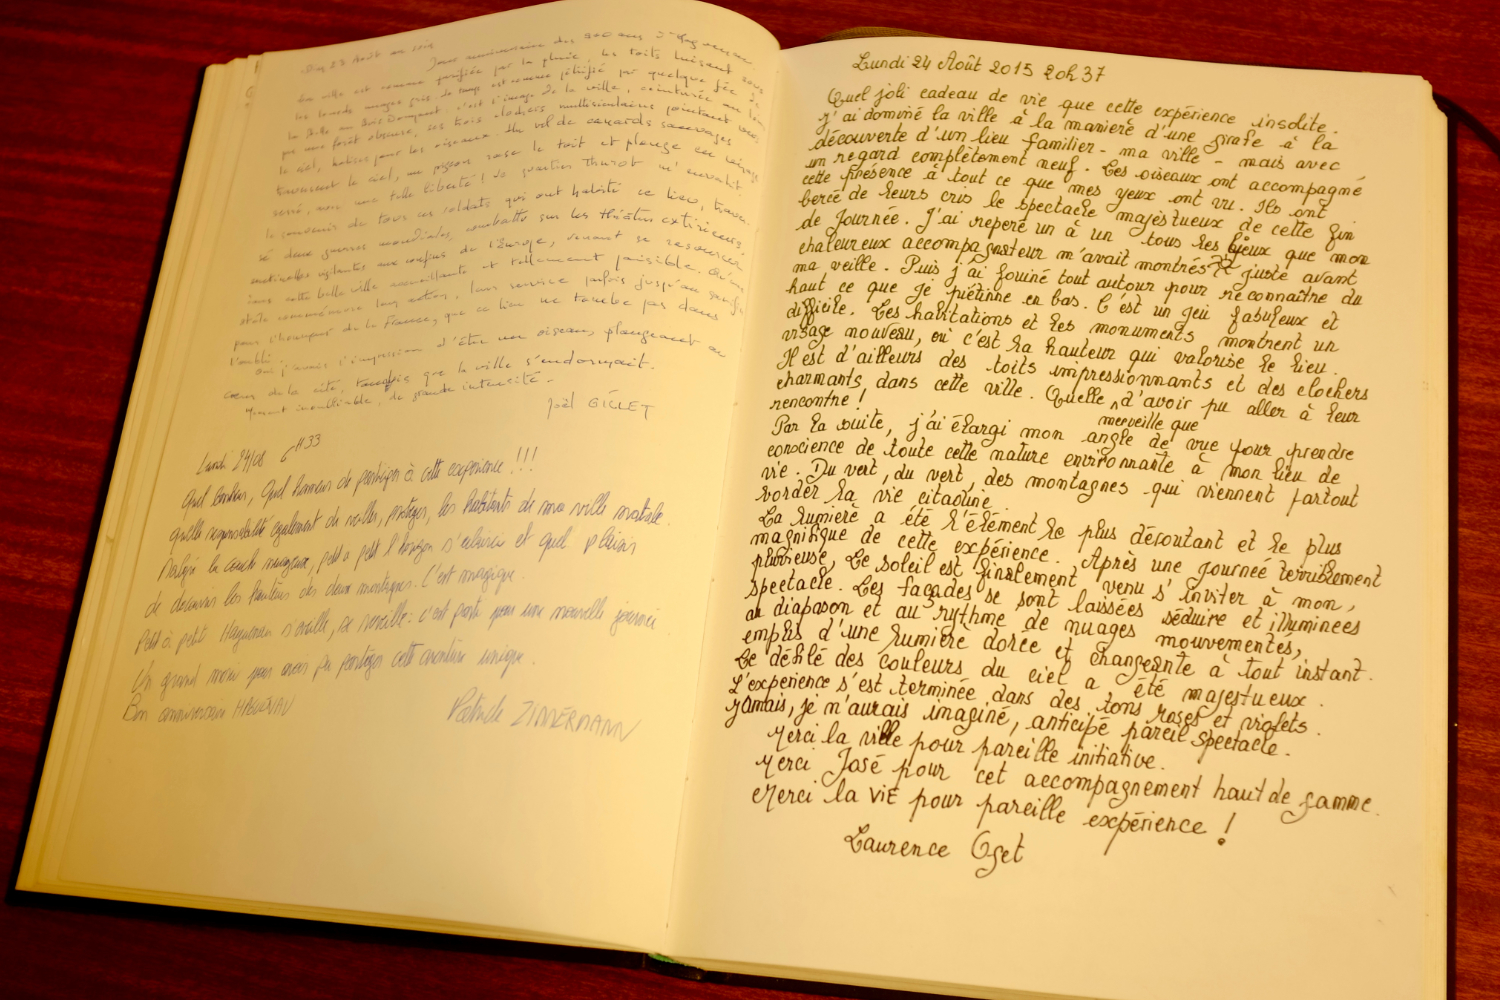 Dim 23 Août au soir
Jour anniversaire des 900 ans d'Haguenau
La ville est comme purifiée par la pluie, les toits luisant sous
les lourds nuages gris
La Belle au Bois Dormant, c'est l'image de la ville, ceinturée
par une forêt obscure, ses trois clochers multiséculaires pointant vers
le ciel, balises pour les oiseaux. Un vol de canards sauvages
traversent le ciel, un pigeon rase le toit et plonge en virage
serré, avec une telle liberté ! Le quartier Thurot m'envahit
le souvenir de tous ces soldats qui ont habité ce lieu,
sé deux guerres mondiales, combattu sur les théâtres extérieurs
sentinelles vigilantes aux confins de l'Europe, venant se ressourcer
dans cette belle ville accueillante et tellement paisible. Qu'une
stèle commémore leur action, leur service parfois jusqu'au sacrifice
pour l'honneur de la France, que ce lieu ne tombe pas dans
l'oubli.
Oui j'avais l'impression d'être un oiseau, plongeant au
cœur de la cité, tandis que la ville s'endormait.
Moment inoubliable, de grande intensité.
Joël GILLET
Lundi 24/08
Quel bonheur, Quel honneur de participer à cette expérience !!!
Quelle responsabilité également de veiller, protéger, les habitants de ma ville natale.
Malgré la couche nuageuse, petit à petit l'horizon s'éclaircit et quel plaisir
de découvrir les hauteurs des deux montagnes. C'est magique.
Petit à petit Haguenau s'éveille, se réveille : c'est parti pour une nouvelle journée
Un grand merci pour avoir pu partager cette aventure unique.
Bon anniversaire HAGUENAU
Patrick ZIMMERMANN
Lundi 24 Août 2015 20h37
Quel joli cadeau de vie que cette expérience insolite.
J'ai dominé la ville à la manière d'une girafe à la
découverte d'un lieu familier - ma ville - mais avec
un regard complètement neuf. Les oiseaux ont accompagné
cette présence à tout ce que mes yeux ont vu. Ils ont
bercé de leurs cris le spectacle majestueux de cette fin
de journée. J'ai reperé un à un tous les lieux que mon
chaleureux accompagnateur m'avait montrés juste avant
ma veille. Puis j'ai fouiné tout autour pour reconnaître du
haut ce que je piétinne en bas. C'est un jeu fabuleux et
difficile. Les habitations et les monuments montrent un
visage nouveau, où c'est la hauteur qui valorise le lieu.
Il est d'ailleurs des toits impressionnants et des clochers
charmants dans cette ville. Quelle merveille que d'avoir pu aller à leur
rencontre !
Par la suite, j'ai élargi mon angle de vue pour prendre
conscience de toute cette nature environnante à mon lieu de
vie. Du vert, du vert, des montagnes qui viennent partout
border la vie citadine.
La lumière a été l'élément le plus déroutant et le plus
magnifique de cette expérience. Après une journée terriblement
pluvieuse, le soleil est finalement venu s'inviter à mon
spectacle. Les façades se sont laissées séduire et illuminées
au diapason et au rythme de nuages mouvementés,
emplis d'une lumière dorée et changeante à tout instant.
Le défilé des couleurs du ciel a été majestueux.
L'expérience s'est terminée dans des tons roses et violets.
Jamais, je n'aurais imaginé, anticipé pareil spectacle.
Merci la ville pour pareille initiative.
Merci José pour cet accompagnement haut de gamme.
Merci la vie pour pareille expérience !
Laurence Oget